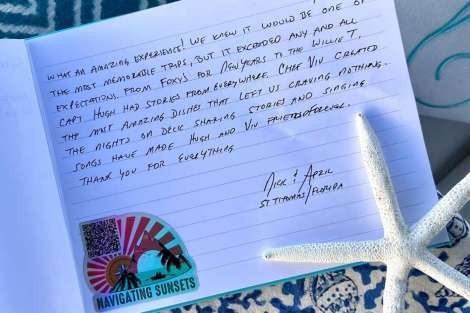 WHAT AN AMAZING EXPERIENCE! WE KNEW IT WOULD BE ONE OF
THE MOST MEMORABLE TRIPS, BUT IT EXCEEDED ANY AND ALL
EXPECTATIONS. FROM FOXY'S FOR NEW YEARS TO THE WILLIE T.
CAPT HUGH HAD STORIES FROM EVERYWHERE. CHEF VIV CREATED
THE MOST AMAZING DISHES THAT LEFT US CRAVING NOTHING.
THE NIGHTS ON DECK SHARING STORIES AND SINGING
SONGS HAVE MADE HUGH AND VIV FRIENDS FOREVER.
THANK YOU FOR EVERYTHING.
NICK & APRIL
ST. THOMAS/FLORIDA
NAVIGATING SUNSETS